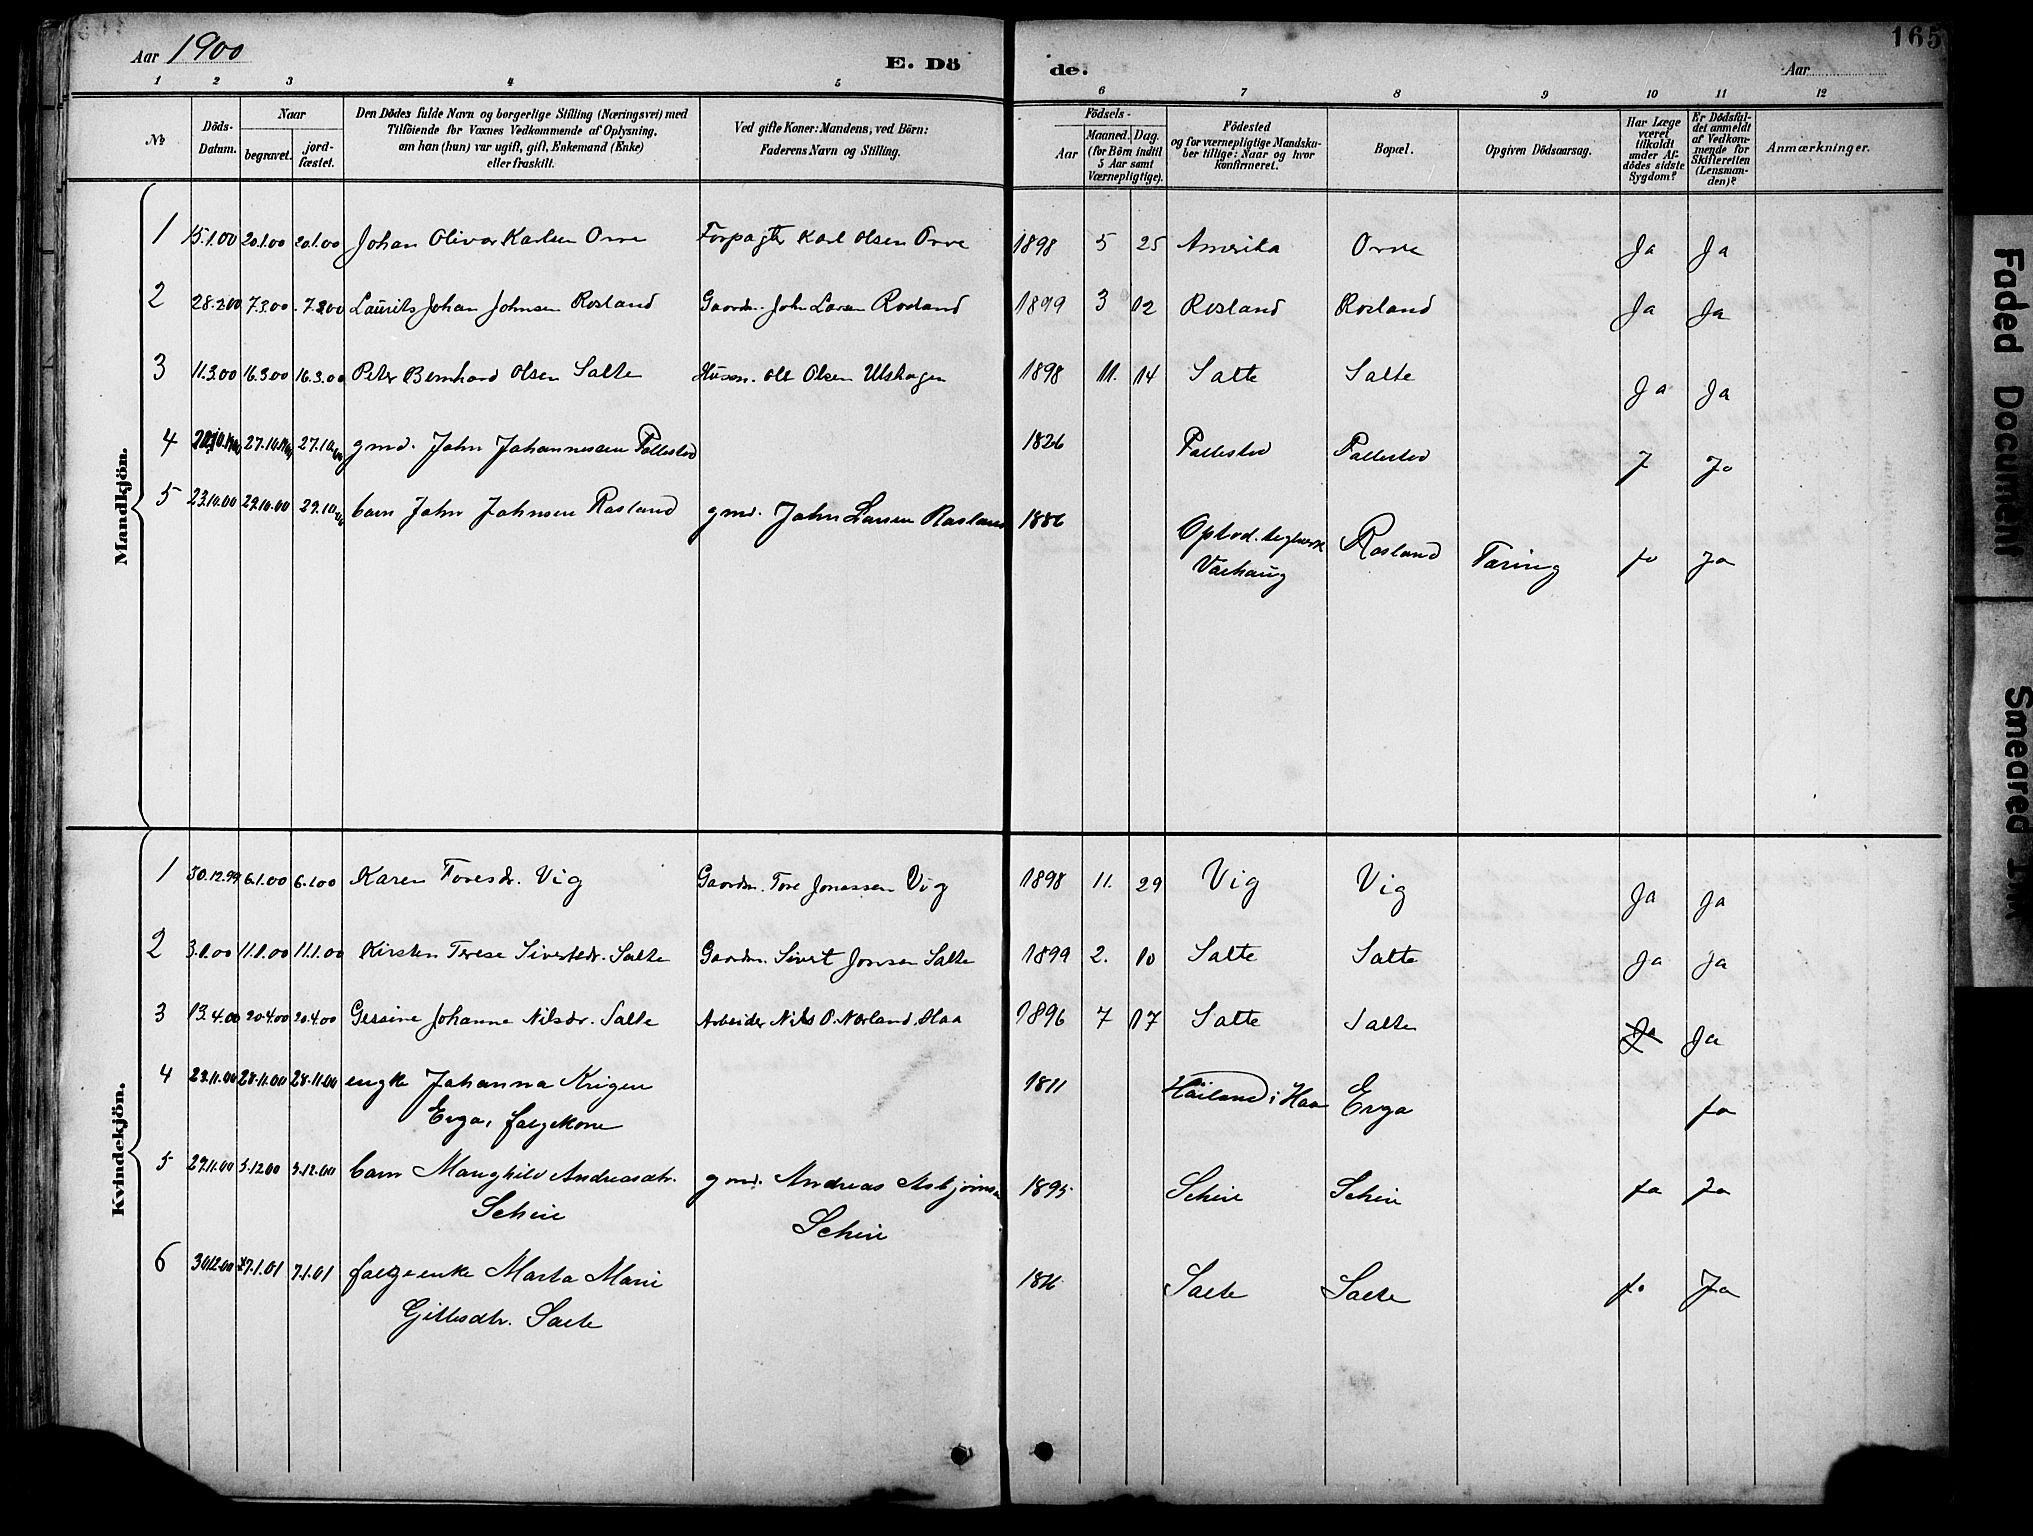 165
Aar 1900
E. Dö de.
Aar
1 2 3 4 5 6 7 8 9 10 11 12
No
Döds-Datum.
Naar
begravet.
jord-fæstet.
Den Dödes fulde Navn og borgerlige Stilling (Næringsvei) med
Tilföiende for Voxnes Vedkommende af Oplysning,
om han (hun) var ugift, gift, Enkemand (Enke)
eller fraskilt.
Ved gifte Koner: Mandens, ved Börn:
Faderens Navn og Stilling.
Födsels-
Aar
Maaned. Dag.
(for Börn indtil
5 Aar samt
Værnepligtige).
Födested
og for værnepligtige Mandska-
ber tillige: Naar og hvor
konfirmeret.
Bopæl.
Opgiven Dödsaarsag.
Har Læge
været
tilkaldt
under Af-
dödes sidste
Sygdom?
Er Dödsfal-
det anmeldt
af Vedkom-
mende for
Skifteretten
(Lensman-
den)?
Anmærkninger.
Mandkjön.
1 15.1.00 20.1.00 20.1.00 Johan Oliver Karlsen Orre Forpagter Karl Olsen Orre 1898 5 25 Amerika Orre Ja Ja
2 28.2.00 7.3.00 7.3.00 Laurits Johan Johnsen Rosland Gaardm. John Larsen Rosland 1899 3 12 Rosland Rosland Ja Ja
3 11.3.00 16.3.00 16.3.00 Peter Bernhard Olsen Salte Husm. Ole Olsen Utshagen 1898 11. 14 Salte Salte Ja Ja
4 27.10.00 27.10.00 gmd. John Johannessen 1826 J Ja
5 23.10.00 29.10.00 29.10.00 barn John Johnsen Rosland gmd. John Larsen Rosland 1886 Varhaug Rosland Tæring Ja Ja
Kvindekjön.
1 30.12.99 6.1.00 6.1.00 Karen Toresdr. Vig Gaardm. Tore Jonassen Vig 1898 11. 29 Vig Vig Ja Ja
2 3.1.00 11.1.00 11.1.00 Kirsten Terese Sivertsdr. Salte Gaardm. Sivert Jonsen Salte 1899 2. 10 Salte Salte Ja Ja
3 13.4.00 20.4.00 20.4.00 Gessine Johanne Nilsdr. Salte Arbeider Nils O. Norland, Haa 1896 7 17 Salte Salte Ja Ja
4 23.11.00 28.11.00 28.11.00 Johanna 1811 Höiland i Haa Erga Ja
Erga,
5 27.11.00 3.12.00 3.12.00 barn Andreasdtr. gmd. Andreas Asbjörnsen 1895 Scheie Scheie Ja Ja
Scheie Scheie
6 30.12.00 7.1.01 7.1.01 Marta Marie Salte Salte Ja Ja
Gittlesdtr. Salte
Faded Document
Smeared Ink